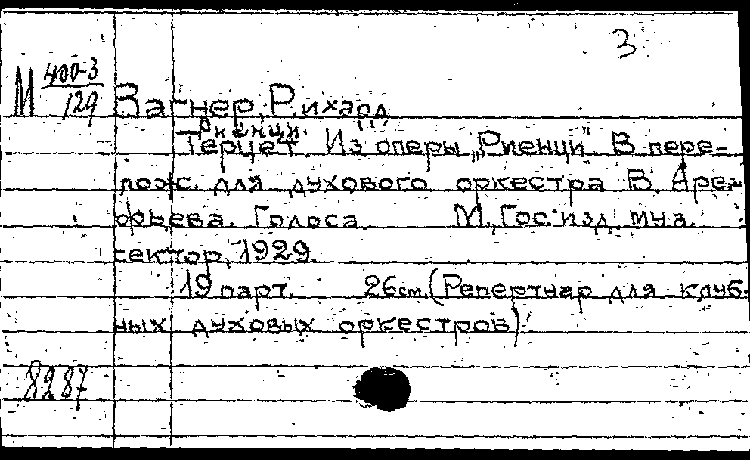 3
М 400-3/129
Вагнер, Рихард
Риенци.
Терцет. Из оперы „Риенци". В пере-
лож. для духового оркестра В. Аре-
фьева. Голоса. М., Гос. изд. муз.
сектор, 1929.
19 парт. 26 см. (Репертуар для клуб-
ных духовых оркестров).
8287